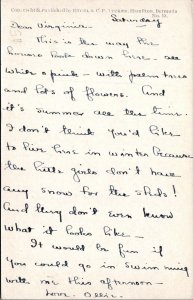 Saturday
Dear Virginia
This is the way the
houses look down here - all
white & pink - with palm trees
and lots of flowers. And
it's summer all the time.
I don't think you'd like
to live here in winter because
the little girls don't have
any snow for the sleds!
And they don't even know
what it looks like -
It would be fun if
you could go in swimming
with me this afternoon -
Love. Ollie.